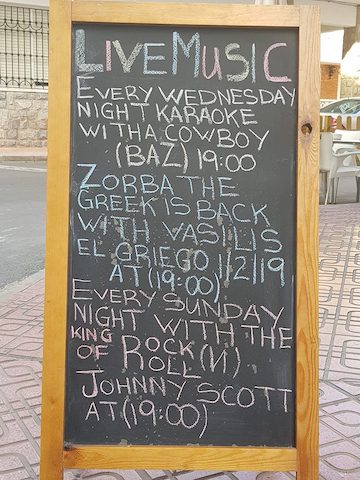 LIVE MUSIC
EVERY WEDNESDAY
NIGHT KARAOKE
WITH A COWBOY
(BAZ) 19:00
ZORBA THE
GREEK IS BACK
WITH VASILIS
EL GRIEGO 1/2/19
AT (19:00)
EVERY SUNDAY
NIGHT WITH THE
KING
OF ROCK (N)
ROLL
JOHNNY SCOTT
AT (19:00)